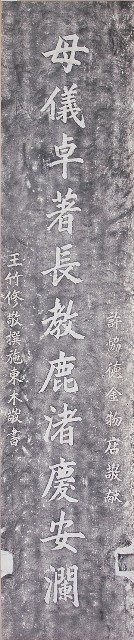 許協德金物店敬献
母儀卓著長教鹿渚慶安瀾
王竹修敬撰施東木敬書